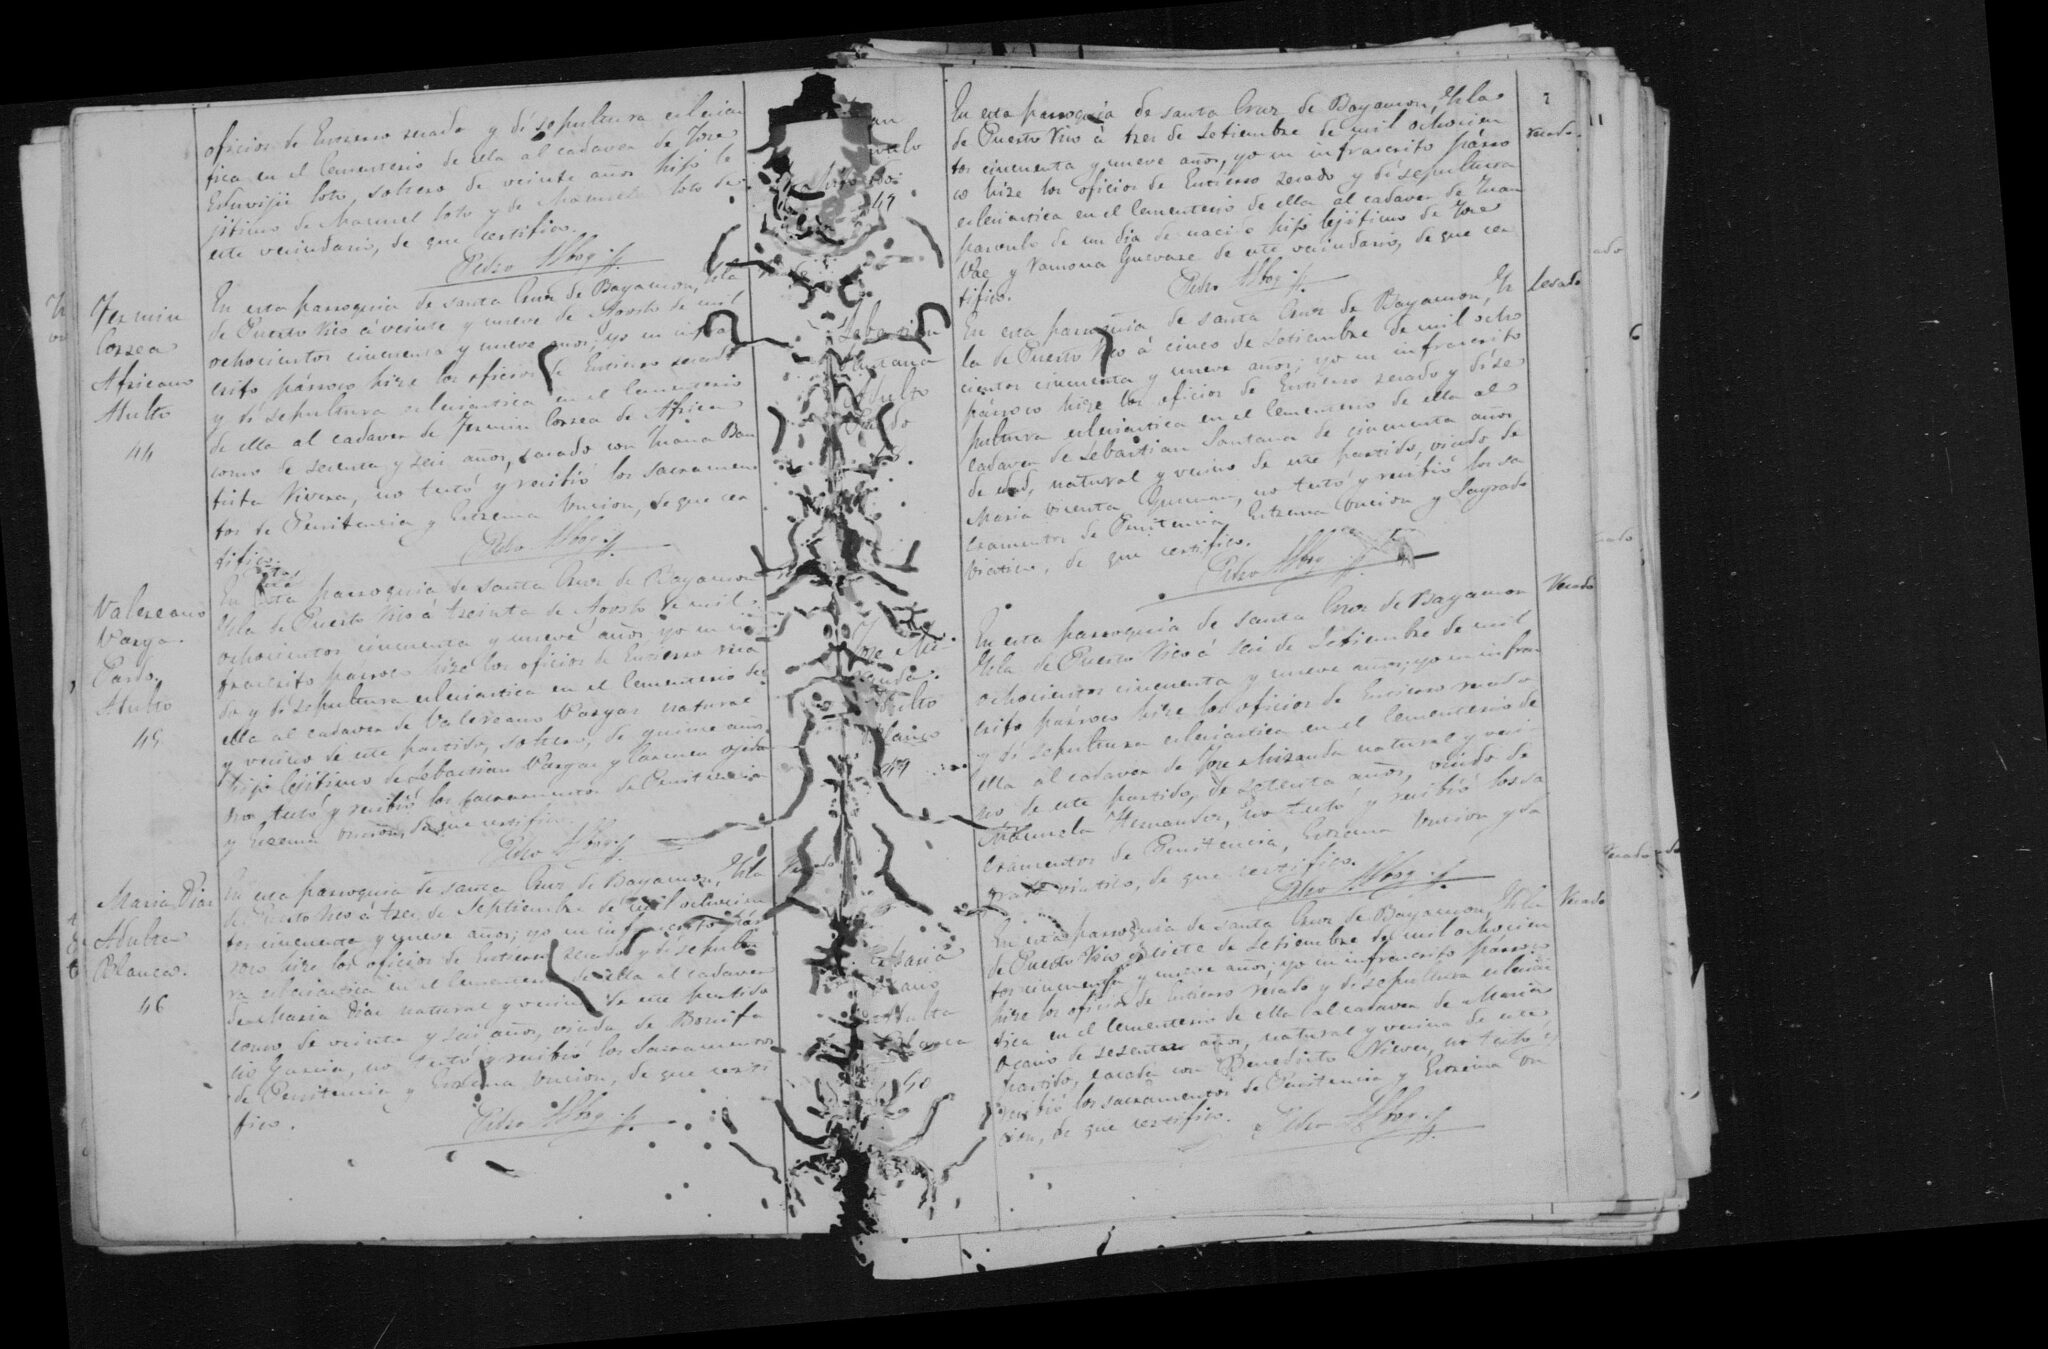 oficios de Entierro rezado y dí sepultura eclesiás
tica en el Cementerio de ella al cadaver de Jose
Eduvigis Soto, soltero de veinte años hijo le
jitimo de Manuel Soto y de Manuela Soto de
este vecindario, de que certifico.
Pedro Alboy
Fermin
Correa
Africano
Adulto
44
En esta parroquia de santa Cruz de Bayamon, Ysla
de Puerto Rico á veinte y nueve de Agosto de mil
ochocientos cincuenta y nueve años, yo un infras
crito párroco hize los oficios de Entierro rezado
y dí sepultura eclesiástica en el Cementerio
de ella al cadaver de Fermin Correa de Africa
como de sesenta y seis años, casado con Maria Bau
tista Rivera, no testó y recibió los sacramen
tos de Penitencia y Estrema Uncion, de que cer
tifico.
Pedro Alboy
Valereano
Varga
Pardo
Adulto
45
En esta parroquia de santa Cruz de Bayamon
Ysla de Puerto Rico á treinta de Agosto de mil
ochocientos cincuenta y nueve años, yo un in
frascrito párroco hize los oficios de Entierro reza
do y dí sepultura eclesiástica en el Cementerio de
ella al cadaver de Valereano Vargas natural
y vecino de este partido, soltero, de quince años
hijo lejitimo de Sebastian Vargas y Carmen Ojeda
no testó y recibió los sacramentos de Penitencia
y Estrema Uncion, de que certifico.
Pedro Alboy
Maria Dias
Adulta
Blanca.
46
En esta parroquia de santa Cruz de Bayamon, Ysla
de Puerto Rico á tres de Septiembre de mil ochocien
tos cincuenta y nueve años; yo un infrascrito pár
roco hize los oficios de Entierro rezado y dí sepultu
ra eclesiástica en el Cementerio de ella al cadaver
de Maria Dias natural y vecina de este partido
como de veinte y seis años, viuda de Bonifa
cio Garcia, no testó y recibió los Sacramentos
de Penitencia y Estrema Uncion, de que certi
fico.
Pedro Alboy
47
En esta parroquia de santa Cruz de Bayamon, Ysla
de Puerto Rico á tres de Setiembre de mil ochocien
tos cincuenta y nueve años, yo un infrascrito párro
co hize los oficios de Entierro rezado y dí sepultura
eclesiástica en el Cementerio de ella al cadaver de Juan
parvulo de un dia de nacido hijo lejitimo de Jose
Rae y Ramona Guevare de este vecindario, de que cer
tifico.
Pedro Alboy
7
rezado
Sebastian
Santana
Adulto
Pardo
48
En esta parroquia de santa Cruz de Bayamon, Ys
la de Puerto Rico á cinco de Setiembre de mil ocho
cientos cincuenta y nueve años; yo un infrascrito
párroco hize los oficios de Entierro rezado y dí se
pultura eclesiástica en el Cementerio de ella al
cadaver de Sebastian Santana de cincuenta años
de edad, natural y vecino de este partido, viudo de
Maria Vicenta Guzman, no testó y recibió los sa
cramentos de Penitencia, Estrema Uncion y Sagrado
Viatico, de que certifico.
Pedro Alboy
Rezado
Jose Mi
randa
Adulto
Blanco
49
En esta parroquia de santa Cruz de Bayamon
Ysla de Puerto Rico á seis de Setiembre de mil
ochocientos cincuenta y nueve años; yo un infras
crito párroco hize los oficios de Entierro rezado
y dí sepultura eclesiástica en el Cementerio de
ella al cadaver de Jose Miranda natural y veci
no de este partido, de setenta años, viudo de
Manuela Hernandez, no testó y recibió los sa
cramentos de Penitencia, Estrema Uncion y Sa
grado viatico, de que certifico.
Pedro Alboy
Rezado
Maria
Ocanio
Adulta
Blanca
50
En esta parroquia de santa Cruz de Bayamon, Ysla
de Puerto Rico á siete de Setiembre de mil ochocien
tos cincuenta y nueve años; yo un infrascrito párroco
hize los oficios de Entierro rezado y dí sepultura eclesiás
tica en el Cementerio de ella al cadaver de Maria
Ocanio de sesenta años, natural y vecina de este
partido, casada con Benedicto Nieves, no testó y
recibió los sacramentos de Penitencia y Estrema Un
cion, de que certifico.
Pedro Alboy
Rezado